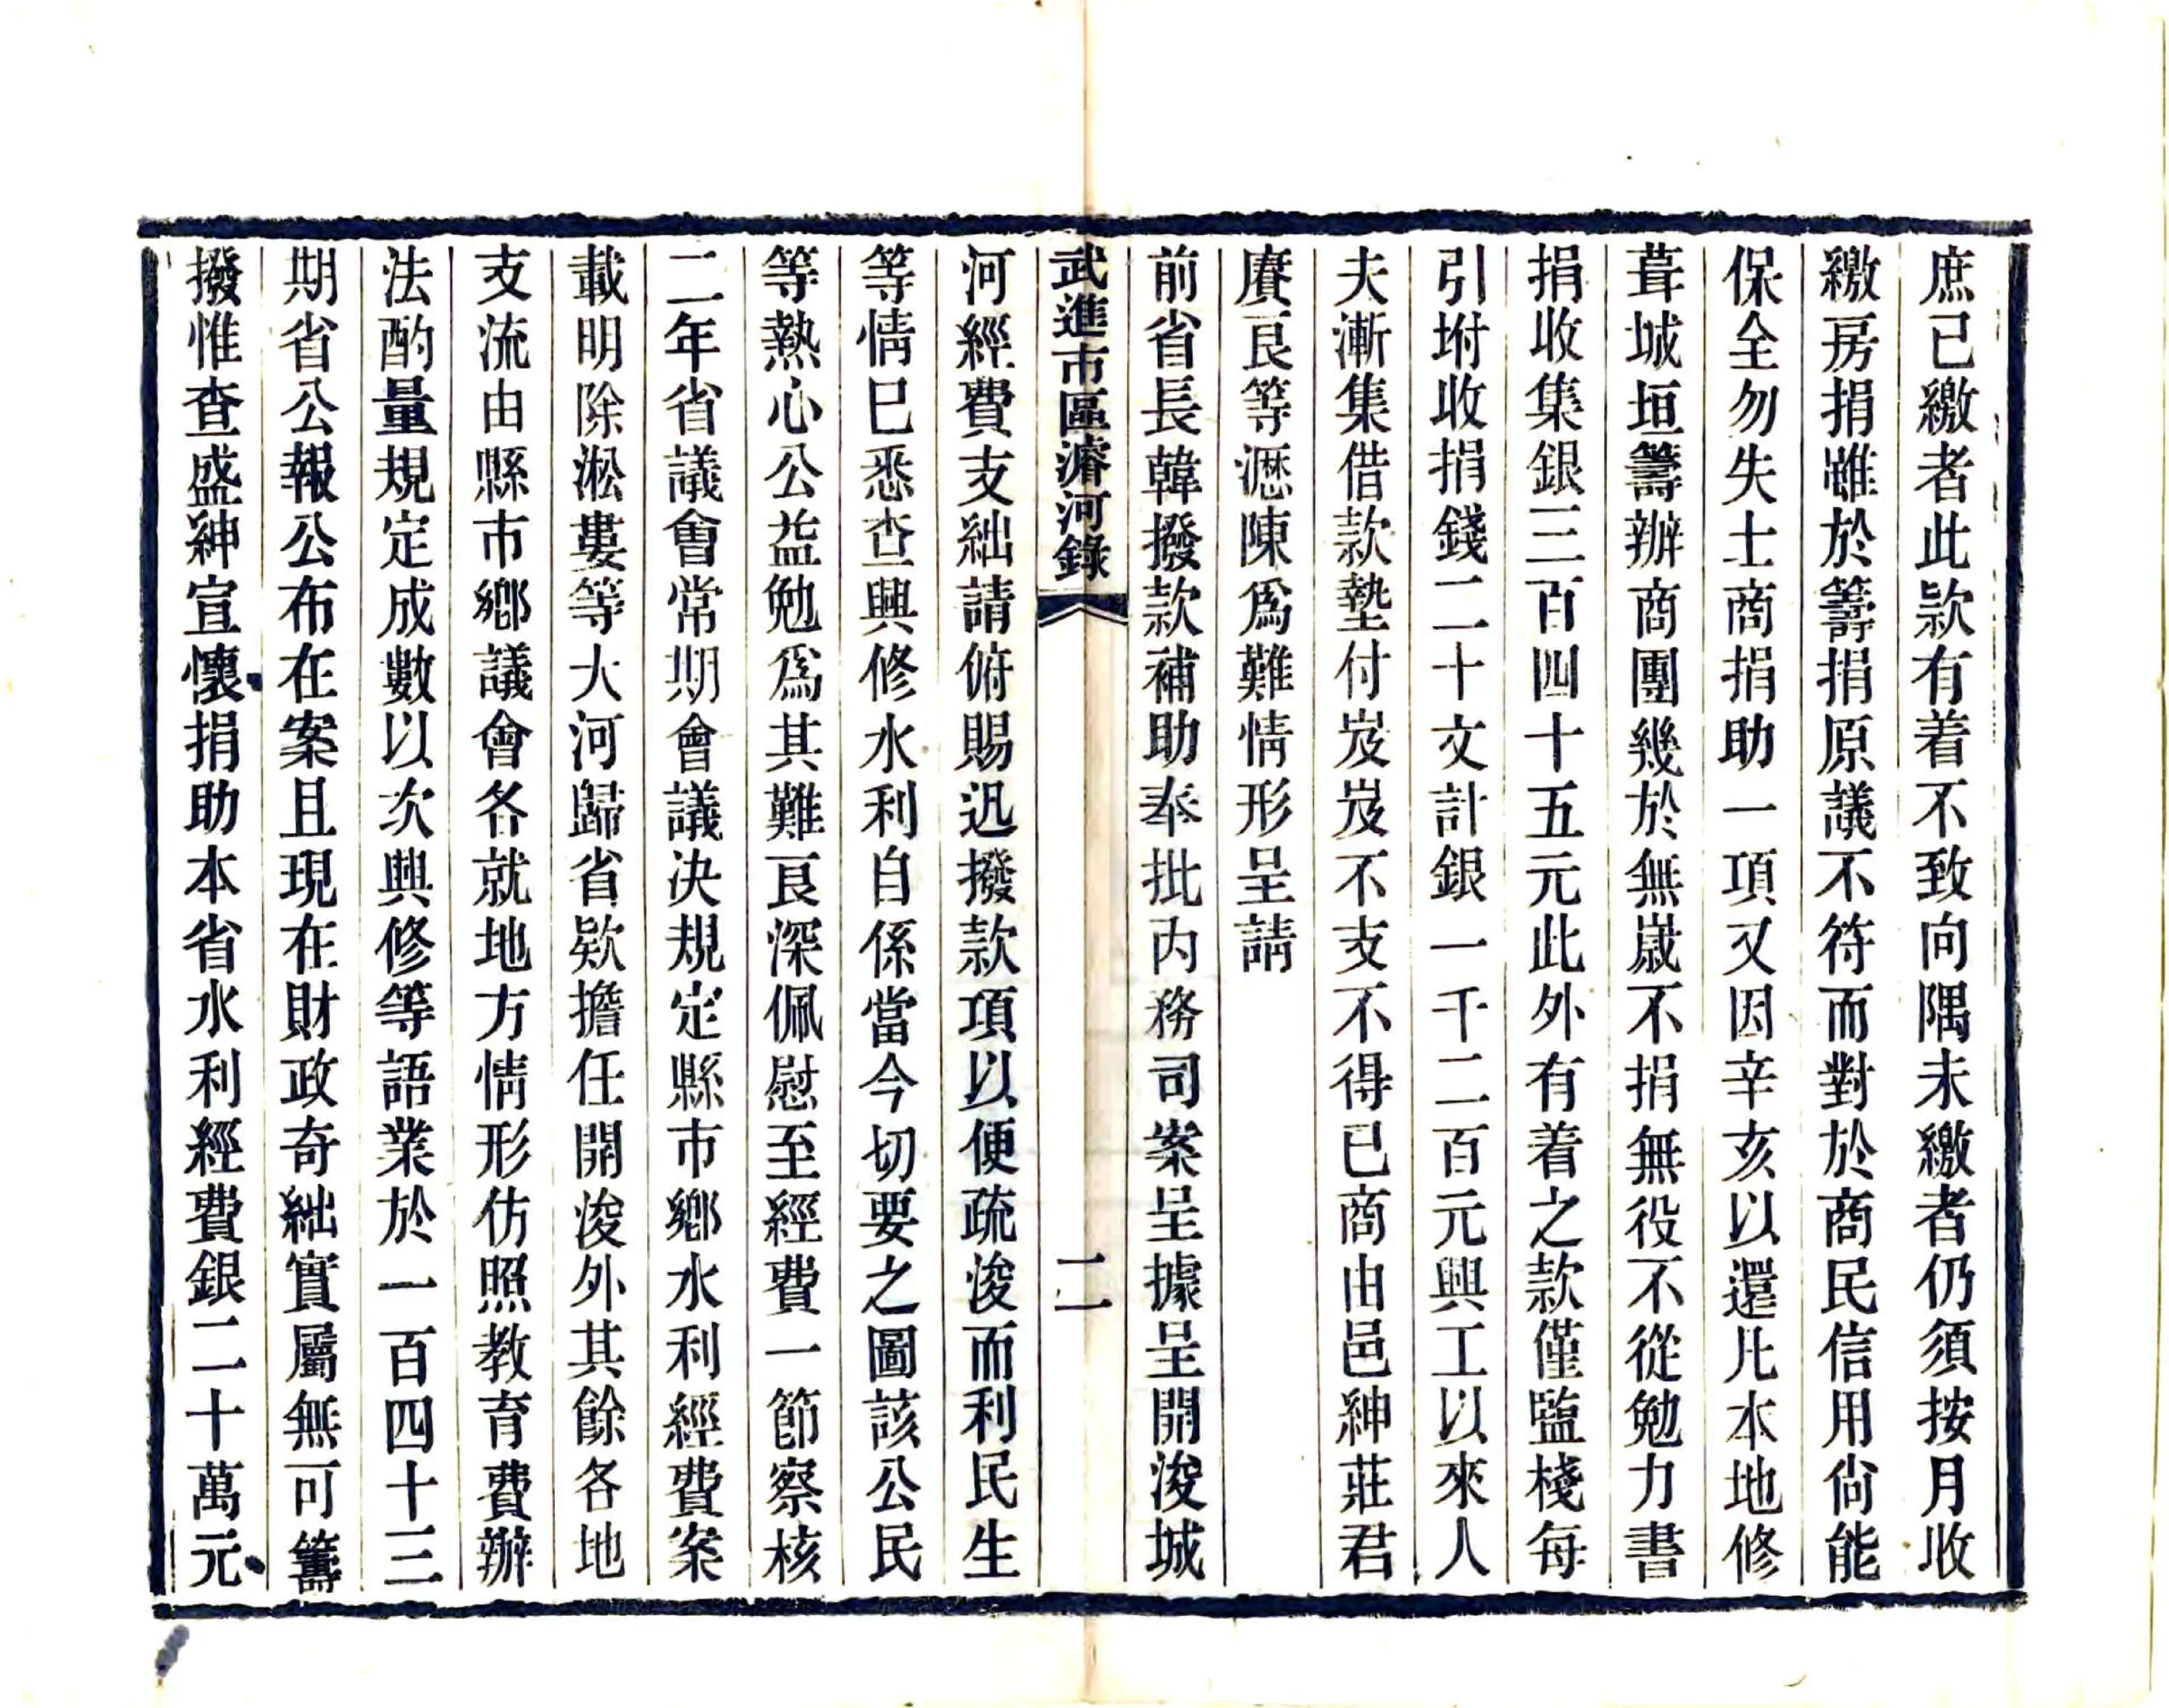 庶已繳者此款有着不致向隅未繳者仍須按月收
繳房捐雖於籌捐原議不符而對於商民信用尙能
保全勿失士商捐助一項又因辛亥以還凡本地修
葺城垣籌辦商團幾於無歲不捐無役不從勉力書
捐收集銀三百四十五元此外有着之款僅鹽棧每
引坿收捐錢二十文計銀一千二百元興工以來人
夫漸集借款墊付岌岌不支不得已商由邑紳莊君
賡良等瀝陳爲難情形呈請
前省長韓撥款補助奉批内務司案呈據呈開浚城
武進市區濬河錄
二
河經費支絀請俯賜迅撥款項以便疏浚而利民生
等情已悉查興修水利自係當今切要之圖該公民
等熱心公益勉爲其難良深佩慰至經費一節察核
二年省議會常期會議決規定縣市鄉水利經費案
載明除淞婁等大河歸省欵擔任開浚外其餘各地
支流由縣市鄉議會各就地方情形仿照教育費辦
法酌量規定成數以次興修等語業於一百四十三
期省公報公布在案且現在財政奇絀實屬無可籌
撥惟查盛紳宣懷捐助本省水利經費銀二十萬元